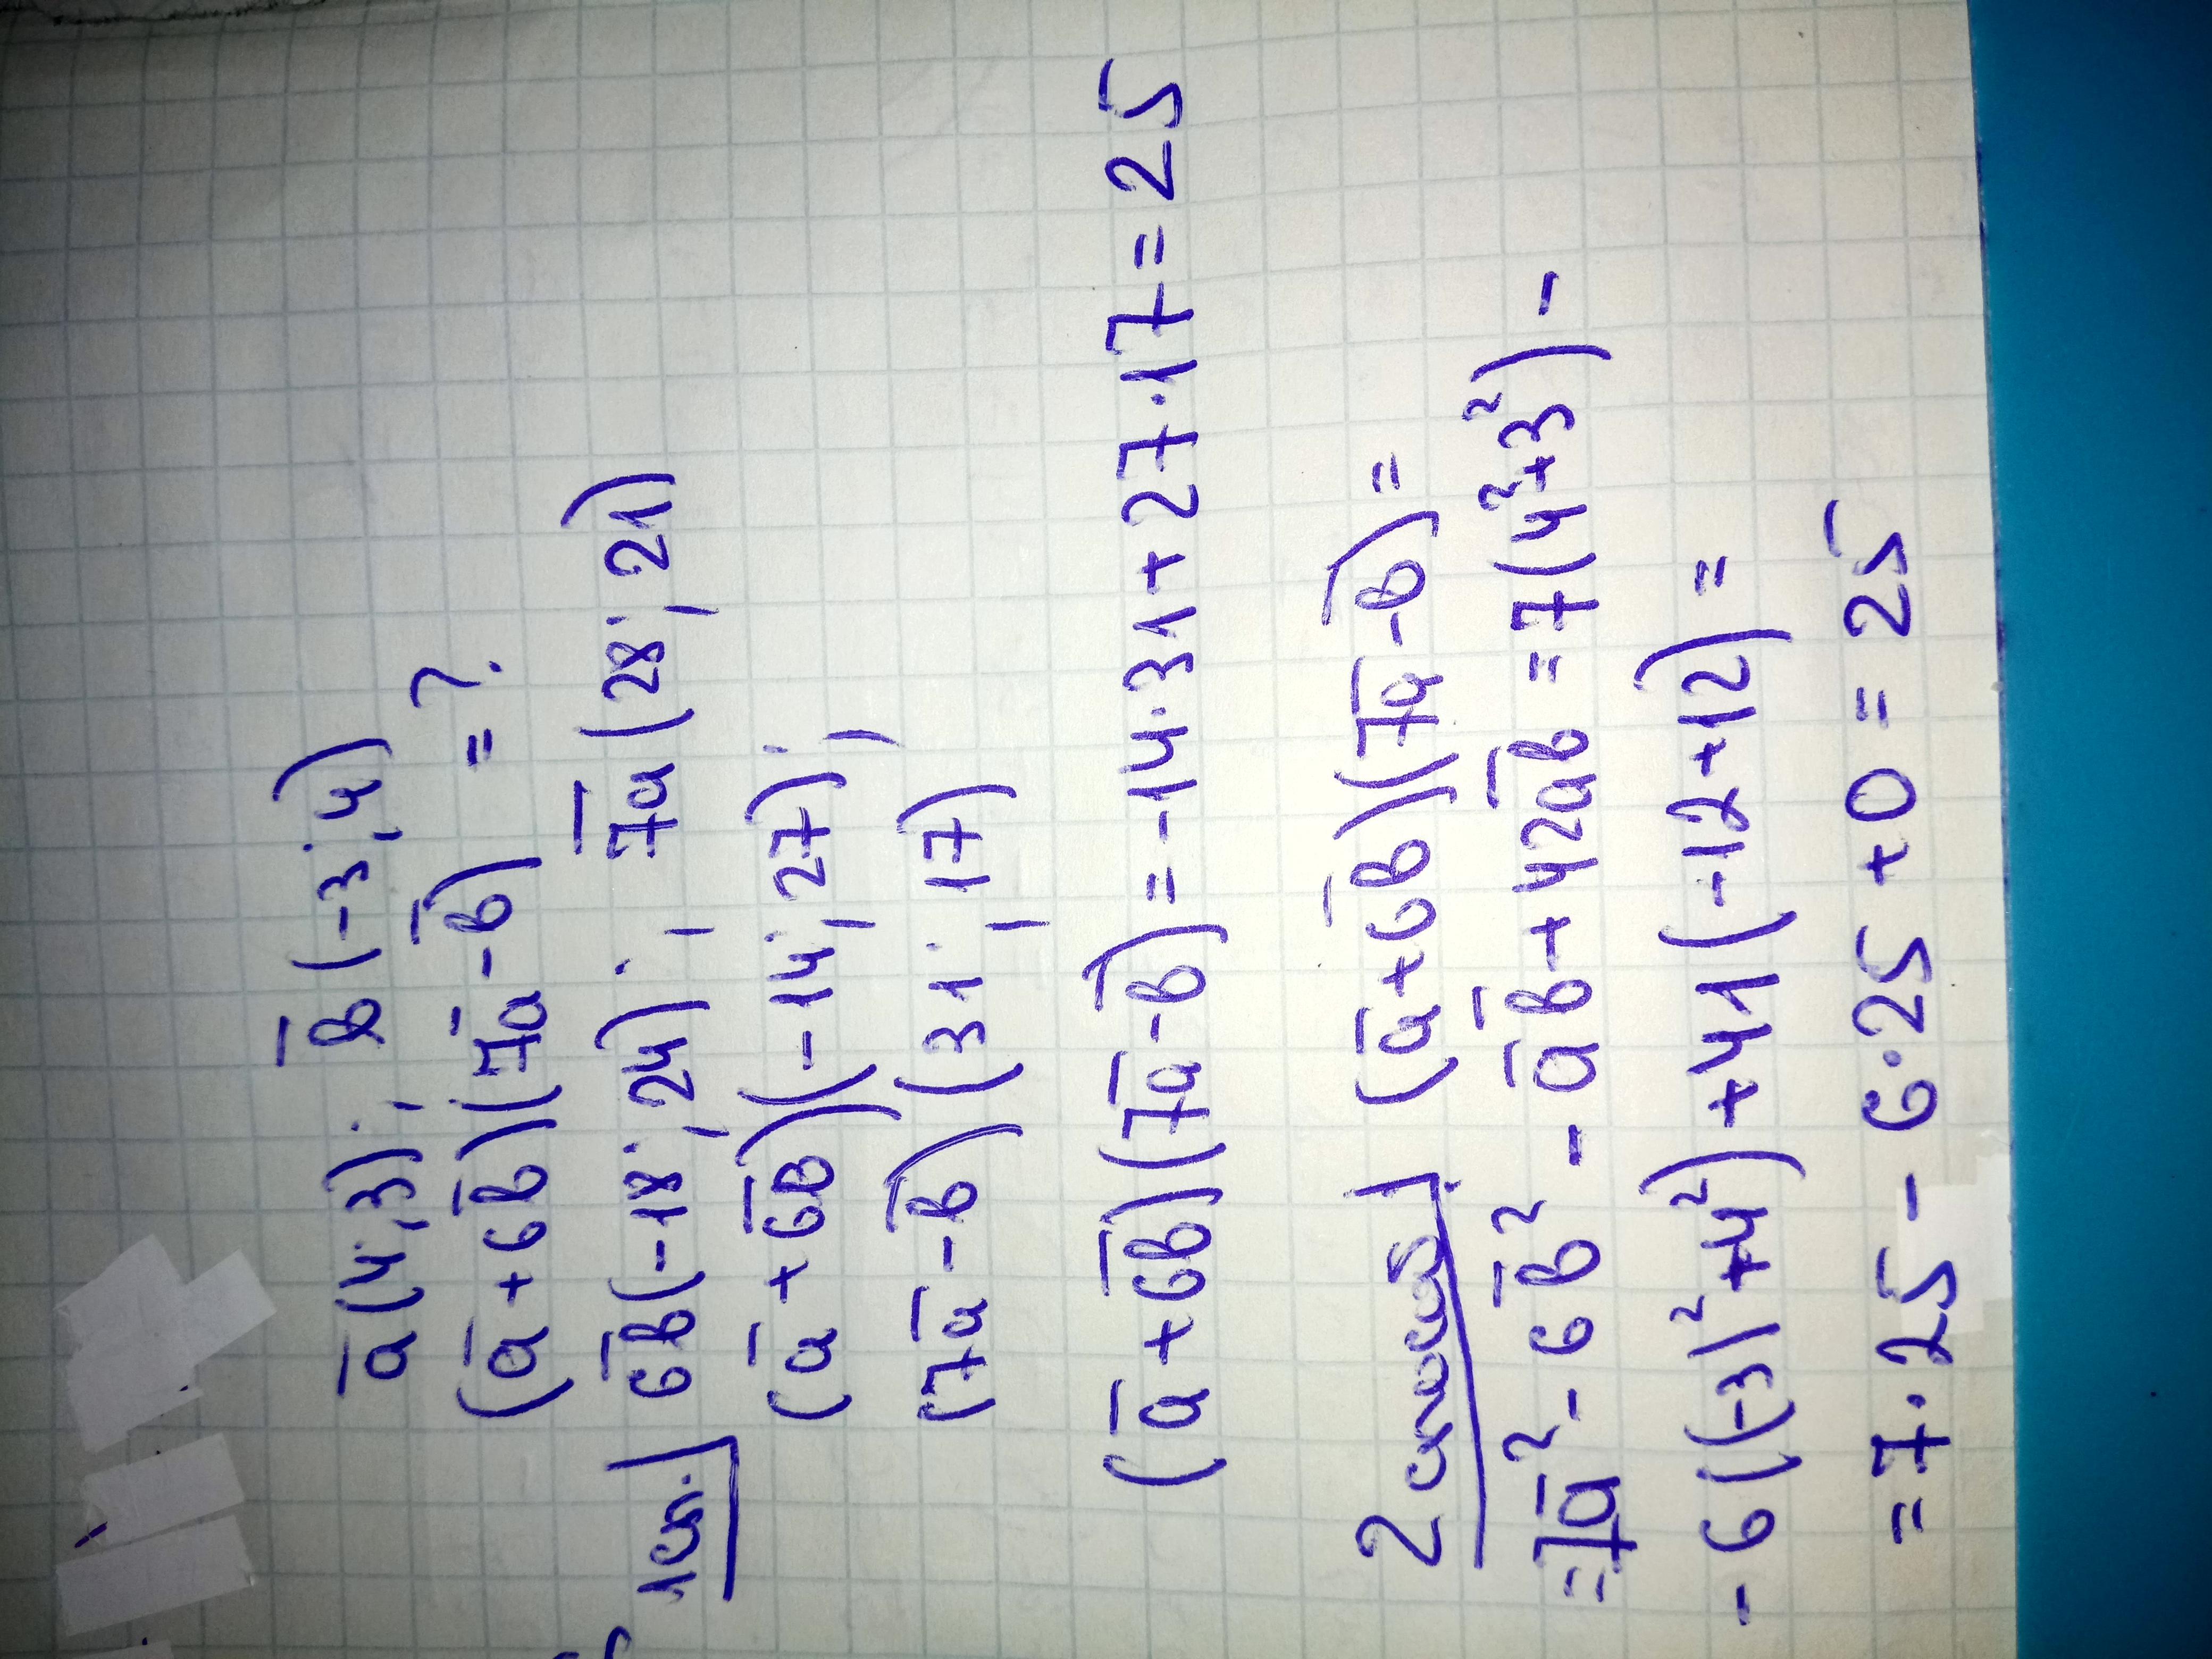 a̅(4;3); b̅(-3;4)
(a̅+6b̅)(7a̅-b̅) =?
1 сп. 6b̅(-18;24); 7a̅(28;21)
(a̅+6b̅)(-14;27);
(7a̅-b̅)(31;17)
(a̅+6b̅)(7a̅-b̅)=-14·31+27·17=25
2 способ. (a̅+6b̅)(7a̅-b̅)=
=7a̅²-6b̅²-a̅b̅+42a̅b̅=7(4²+3²)-
-6((-3)²+4²)+41(-12+12)=
=7·25-6·25+0=25